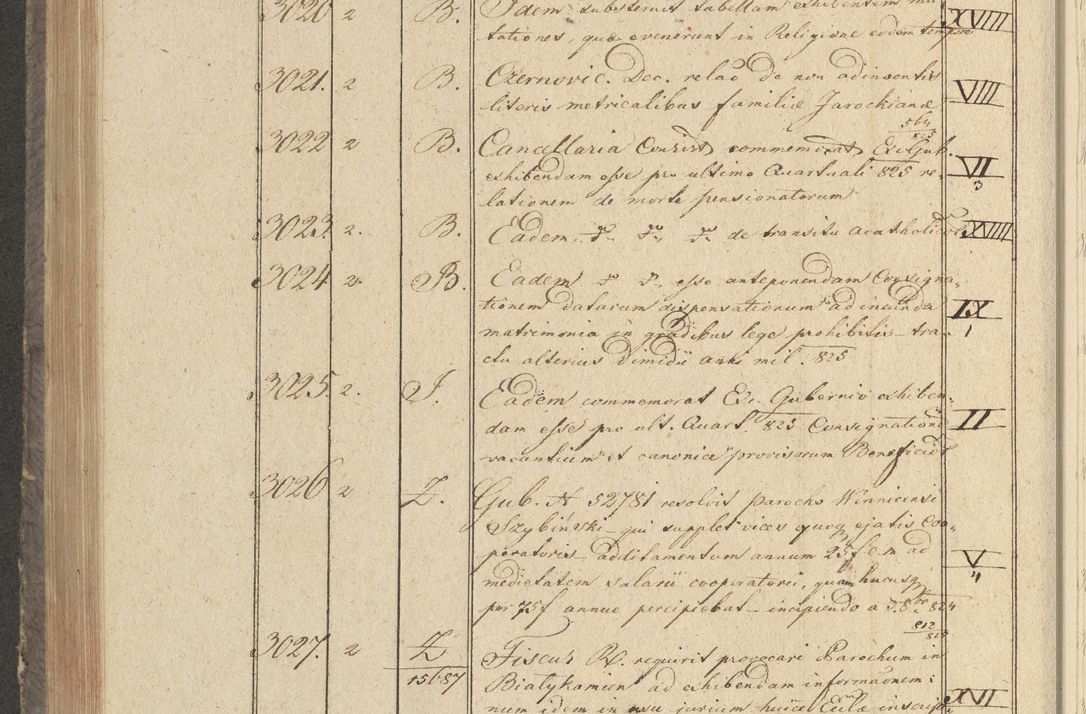 3020 2 B. Idem substernit tabellam exhibentem mu
tationes, quae evenerunt in Religione eodem tempore XVIII
3021. 2 B. Czernovic. Dec. relaō de non adinventis
literis metricalibus familiae Jarockianae VIII
564/825
3022 2 B. Cancellaria Consist commemorat Exc. Gub.
exhibendam esse pro ultimo Quartuali 825 re- VI 3
lationem de morte pensionatorum
3023. 2. B. Eadem de transitu acatholicor XVIII
3024 2 B. Eadem esse anteponendam Consigna-
tionem datarum dispensationum ad ineunda IX 1
matrimonia in gradibus lege prohibitis tra-
ctu alterius dimidii anni mil. 825
3025. 2. J. Eadem commemorat Ex. Gubernio exhiben-
dam esse pro ult. Quart. 825 Consignationē II
vacantium et canonice provisarum Beneficior
3026 2 Z. Gub. N 52781 resolvit parocho Winnicensi
Szybiński qui supplet vices quoq ejatis Coo-
peratoris additamentum annuum 25 f C.M. ad V 4
medietatem salarii cooperatorei, quam hucusq
per 75 f annue percipiebat incipiendo a 8br 824
812/825
3027. 2 Z 15687 Fiscus R. requirit provocari Parochum in
Białykamien ad exhibendam informaōnem:
num idem in usu jurium huice Eccłae inscrip- XVI